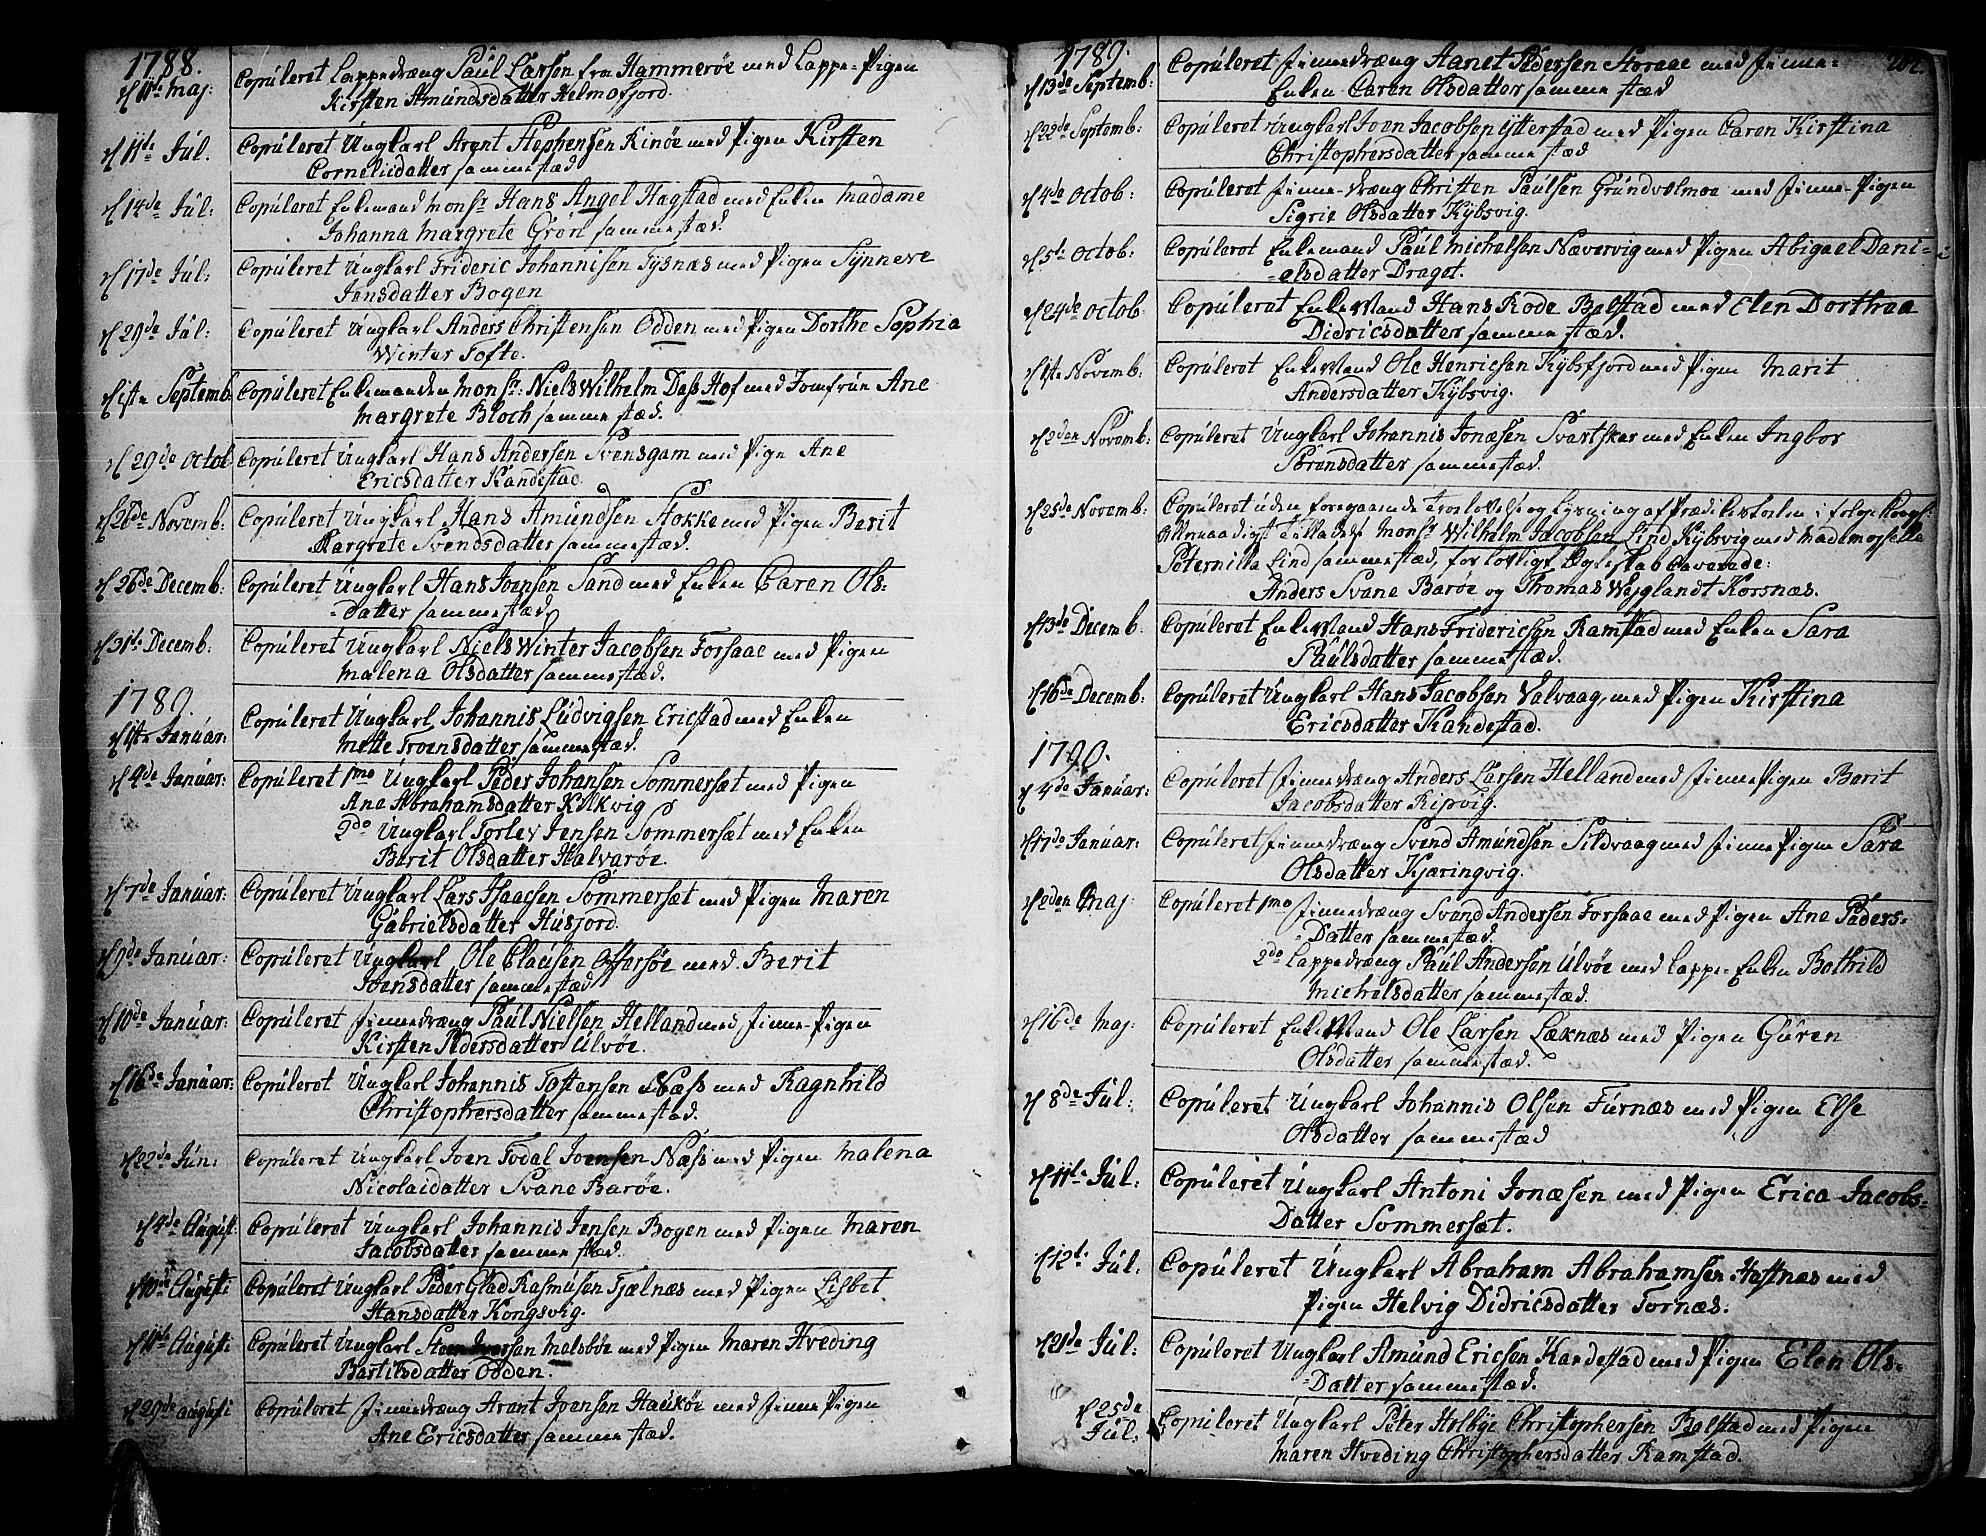 1788.
d 11te Maj: Copúleret Lappedræng Paúl Larsen fra Hammerøe med Lappe-Pigen
Kirsten Amúndsdatter Helmofjord.
d 11te Júl. Copúleret Úngkarl Arent Stephensen Rinøe med Pigen Kirsten
Corneliidatter sammestæd
d 14de Júl: Copúleret Enkemand Monsr Hans Angel Hagstad med Enken Madame
Johanna Margrete Grön sammestæd.
d 17de Júl: Copúleret Úngkarl Frideric Johannisen Tÿsnæs med Pigen Sÿnneve
Jensdatter Bogen
d 29de Júl: Copúleret Úngkarl Anders Christensen Odden med Pigen Dorthe Sophia
Winter Tofte.
d 1ste Septemb Copúleret Enkemanden Monsr: Niels Wilhelm Dass Hof med Jomfrúe Ane
Margrete Bloch sammestæd.
d 29de Octob Copúleret Úngkarl Hans Andersen Svensgam med Pige Ane
Ericsdatter Kandestad.
d 26de Novemb: Copúleret Úngkarl Hans Amúndsen Stokke med Pigen Berit
Margrete Svendsdatter sammestæd.
d 26de Decemb: Copúleret Úngkarl Hans Joensen Sand med Enken Caren Ols-
-datter sammestæd
d 31te Decemb: Copúleret Úngkarl Niels Winter Jacobsen Forsaae med Pigen
Malena Olsdatter sammestæd.
1789.
d 1ste Janúar: Copúleret Úngkarl Johannis Lúdvigsen Ericstad med Enken
Mette Troensdatter sammestæd.
d 4de Janúar: Copúleret 1mo Úngkarl Peder Johansen Sommersæt med Pigen
Ane Abrahamsdatter Kilkvig
2do Úngkarl Torlev Jensen Sommersæt med Enken
Berit Olsdatter Halvarøe.
d 7de Janúar: Copúleret Úngkarl Lars Isaacsen Sommersæt med Pigen Maren
Gabrielsdatter Húsjord.
d 9de Janúar: Copúleret Úngkarl Ole Claúsen Offersøe med Berit
Joensdatter sammestæd
d 10de Janúar: Copúleret Finnedræng Paúl Nielsen Helland med Finne-Pigen
Kirsten Pedersdatter Úlvøe.
d 16de Janúar: Copúleret Úngkarl Johannis Tostensen Næss med Ragnhild
Christophersdatter sammestad.
d 22de Jún: Copúleret Úngkarl Joen Todal Joensen Næss med Pigen Malena
Nicolaidatter Svane Barøe.
d 4de Aúgúst: Copúleret Úngkarl Johannis Jensen Bogen med Pigen Maren
Jacobsdatter sammestæd.
d 10de Aúgústi Copúleret Úngkarl Peder Glad Rasmúsen Tjælnæs med Pigen Lisbet
Hansdatter Kongsvig.
d 11te Aúgústi Copúleret Úngkarl Steen Iversen Melsboe med Pigen Maren Hveding
Bartilsdatter Odden.
d 29de aúgústi Copúleret Finnedræng Arent Joensen Haúkøe med Finne Pigen
Ane Ericsdatter sammestæd.
1789.
d 13de Septemb: Copúleret Finnedræng Hanet Pedersen Forsaae med Finne-
Enken Caren Olsdatter sammestæd
d 22de Septemb: Copúleret Úngkarl Joen Jacobsen Ytterstad med Pigen Caren Kirstina
Christophersdatter sammestæd
d 4de Octob: Copúleret Finne-dræng Christen Paúlsen Grúndvelmoe med Finne-Pigen
Sigrie Olsdatter Kÿbsvig.
d 5te Octob: Copúleret Enkemand Paúl Michelsen Nævervig med Pigen Abigael Dani-
-elsdatter Draget.
d 24de Octob: Copúleret Enkemand Hans Rode Balstad med Elen Dorthea
Didricsdatter sammestæd.
d 1ste Novemb: Copúleret Enkemand Ole Henricsen Kÿbsfjord med Pigen Marit
Andersdatter Kÿbsvig.
d 2den Novemb: Copúleret Úngkarl Johannis Jonæsen Svartskar med Enken Ingbor
Sörensdatter sammestæd.
d 25de Novemb: Copúleret úden foregaaende Trolovelse og Lÿsning af Prædikestoelen i følge Kongl:
Allernaadigst Tilladelse Monsr Wilhelm Jacobsen Lind Kÿbsvig med Mademoiselle
Peternilla Lind sammestæd, for lovligt Ægteskab Caverede:
Anders Svane Barøe og Thomas Weÿlandt Korsnæs.
d 13de Decemb. Copúleret Enkemand Hans Fridericsen Ramstad med Enken Sara
Paúlsdatter sammestæd.
d 16de Decemb: Copúleret Úngkarl Hans Jacobsen Valvaag, med Pigen Kirstina
Ericsdatter Kandestad.
1790.
d 4de Janúar: Copúleret Finnedræng Anders Larsen Helland med Finne Pigen Berit
Jacobsdatter Ripvig.
d 17de Janúar: Copúleret Finnedræng Svend Amúndsen Sildvaag med Finne Pigen Sara
Olsdatter Kjæringvig.
d 2den Maj Copúleret 1mo Finnedræng Svend Andersen Forsaae med Pigen Ane Peders-
-datter sammestæd.
2do Lappedræng Paúl Andersen Úlvøe med Lappe-Enken Bothild
Michelsdatter sammestæd.
d 16de Maj: Copúleret Enkemand Ole Larsen Læknæs med Pigen Gúren
Olsdatter sammestæd.
d 8de Júl: Copúleret Úngkarl Johannis Olsen Fúrnæs med Pigen Else
Olsdatter sammestæd
d 11te Júl: Copúleret Úngkarl Antoni Jonæsen med Pigen Erica Jacobs-
Datter Sommersæt.
d 12te Júl: Copúleret Úngkarl Abraham Abrahamsen Hastnæs med
Pigen Helvig Didricsdatter Tornæs:
d 21de Júl: Copúleret Úngkarl Amúnd Ericsen Kandestad med Pigen Elen Ols-
-Datter sammestæd.
d 25de
Júl: Copúleret Úngkarl Peter Holbÿe Christophersen Balstad med Pigen
Maren Hveding Christophersdatter Ramstad.